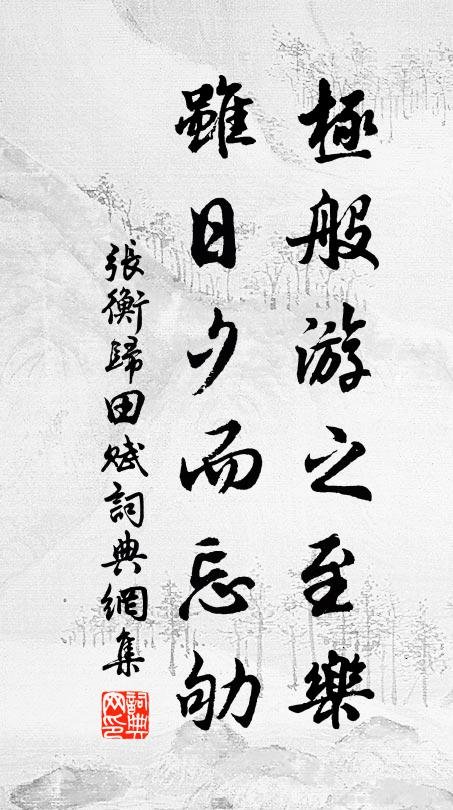 極般游之至樂
雖日夕而忘劬
張衡歸田賦詞典網集
詞典網印